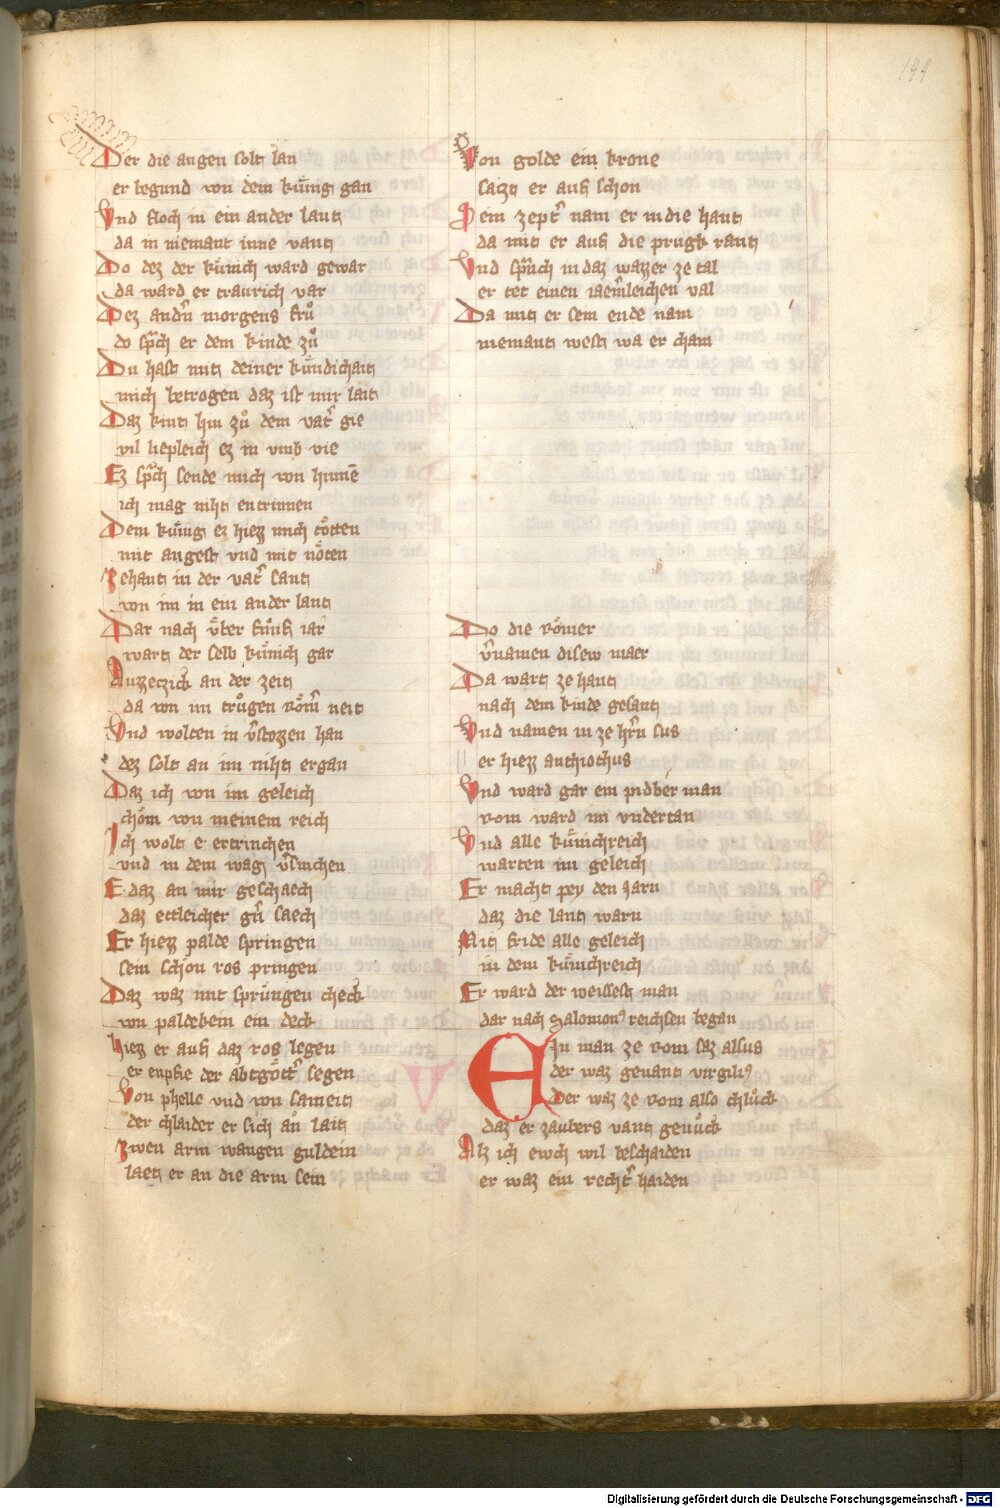 144
Der die augen solt lan
er begund von dem kűnig gan
Vnd floch in ein ander lant
da in niemant inne vant
Do dez der kűnich ward gewar
da ward er traurich var
Dez andn̄ morgens frů
do sp̄ch er dem kinde zů
Du hast mit deiner kűndichait
mich betrogen daz ist mir lait
Daz kint hin zů dem vat̄ gie
vil liepleich ez in vmb vie
Ez sp̄ch sende mich von hinnē
ich mag niht entrinnen
Dem kűnig ez hiezz mich tötten
mit angest vnd mit nöten
Zehant in der vat̄ sant
von im in ein ander lant
Dar nach vͤber fűnf iar
wart der selb kűnich gar
Auzzeczick an der zeit
da von im trůgen Röm̄ neit
Vnd wolten in v̄stozzen han
dez solt an im niht ergan
Daz ich von im geleich
chöm von meinem reich
Ich wolt e ertrinchen
vnd in dem wag v̄sinchen
E daz an mir geschaech
daz ettleicher ḡn saech
Er hiezz palde springen
sein schon ros pringen
Daz waz mit sprűngen check
von paldekein ein deck
Hiezz er auf daz ros legen
er enpfie der abtgött̄ segen
Von phelle vnd von sameit
der chlaider er sich an lait
Zwen arm wangen guldein
laet er an die arm sein
Von golde ein krone
satzt er auf schon
Sein zept̄ nam er in die hant
da mit er auf die prugk rant
Vnd sprach in daz wazzer ze tal
er tet einen iaem̄leichen val
Da mit er sein ende nam
niemant west wa er cham
Do die Römer
v̄namen disew maer
Da wart ze hant
nach dem kinde gesant
Vnd namen in ze hr̄n sus
er hiezz anthiochus
Vnd ward gar ein pidber man
Rom ward im vndertan
Vnd alle kűnichreich
warten im geleich
Er macht pey den iarn
daz die lant warn
Mit fride alle geleich
in dem kűnichreich
Er ward der weissest man
dar nach Salomonꝰ reichsen began
Ein man ze Rom saz alsus
der waz genant virgiliꝰ
Der waz ze Rom also chlůck
daz er zaubers vant genůck
Alz ich ewch wil beschaiden
er waz ein recht̄ haiden
Digitalisierung gefördert durch die Deutsche Forschungsgemeinschaft - DFG